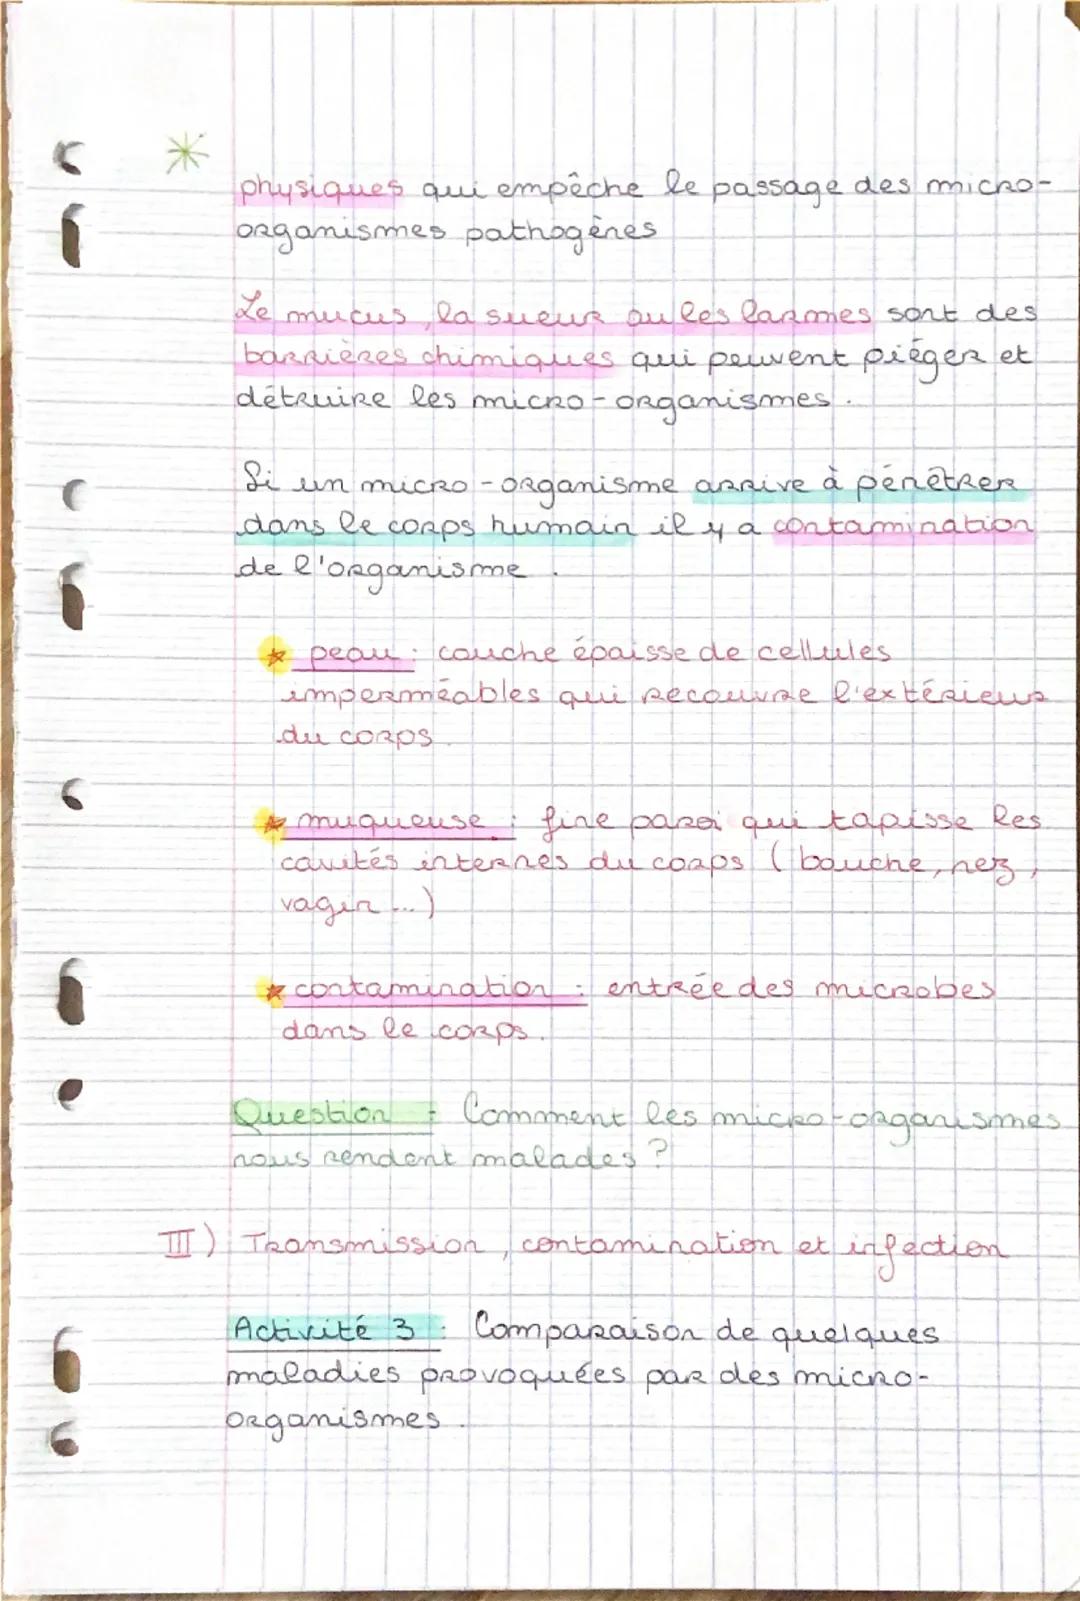 physiques qui empêche le passage des micro-
organismes pathogènes
Le mucus, la sueur ou les larmes sont des
barrières chimiques qui peuvent piéger et
détruire les micro-organismes.
Si un micro-organisme arrive à pénêtrer
dans le corps humain il y a contamination
de l'organisme.
peau : couche épaisse de cellules
imperméables qui recouvre l'extérieur
du corps.
muqueuse : fine paroi qui tapisse les
cavités internes du corps (bouche, nez,
vagin ...)
contamination : entrée des microbes
dans le corps.
Question : Comment les micro-organismes
nous rendent malades ?
III) Transmission, contamination et infection
Activité 3 : Comparaison de quelques
maladies provoquées par des micro-
organismes.